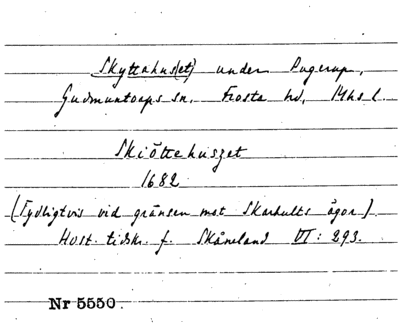 Skyttahus(et) under Pugerup,
Gudmuntorps sn. Frosta hd, Mhs l.
Skiöttehuszet
1682
(Tydligtvis vid gränsen mot Skarhults ägor)
Hist. tidskr. f. Skåneland VI: 293.
Nr 5550.